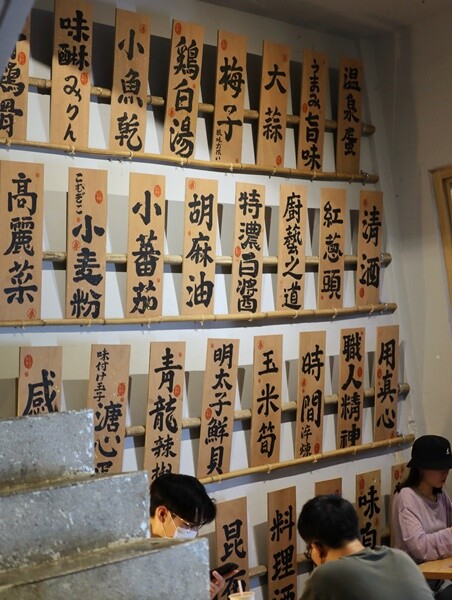 雞骨
味醂みりん
小魚乾
鷄白湯
梅子
大蒜
うまみ旨味
温泉蛋
高麗菜
こむぎこ小麦粉
小蕃茄
胡麻油
特濃白醬
廚藝之道
紅蔥頭
清酒
感
味付け玉子溏心蛋
青龍辣椒
明太子鮮貝
玉米筍
時間淬煉
職人精神
用真心
昆
料理酒
味